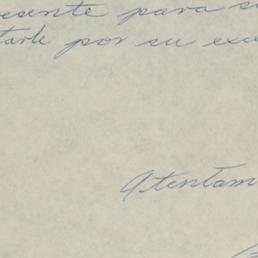 resente para s
tarle por su exce
Atentam